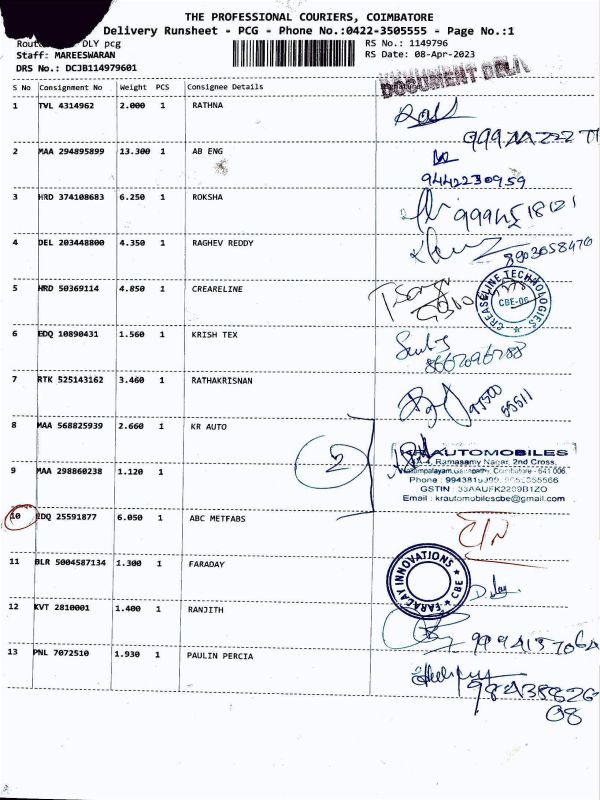 THE PROFESSIONAL COURIERS, COIMBATORE
Delivery Runsheet - PCG - Phone No.:0422-3505555 - Page No.:1
DLY pcg
RS No.: 1149796
Staff: MAREESWARAN
RS Date: 08-Apr-2023
DRS No.: DCJB114979601
DOCUMENT
S No Consignment No Weight PCS Consignee Details
1 TVL 4314962 2.000 1 RATHNA
2 MAA 294895899 13.300 1 AB ENG
9442230959
3 HRD 374108683 6.250 1 ROKSHA
4 DEL 203448800 4.350 1 RAGHEV REDDY
8903058470
5 HRD 50369114 4.850 1 CREARELINE
CREASELINE TECHNOLOGIES
CBE-06
6 EDQ 10890431 1.560 1 KRISH TEX
7 RTK 525143162 3.460 1 RATHAKRISNAN
97500
55511
8 MAA 568825939 2.660 1 KR AUTO
2
KR AUTOMOBILES
Ramasamy Nagar, 2nd Cross,
Coimbatore - 641 006.
GSTIN : 33AAUFK2209B1ZO
Email : krautomobilescbe@gmail.com
9 MAA 298860238 1.120 1
10 EDQ 25591877 6.050 1 ABC METFABS
C/N
11 BLR 5004587134 1.300 1 FARADAY
FARADAY INNOVATIONS
CBE
12 KVT 2810001 1.400 1 RANJITH
13 PNL 7072510 1.930 1 PAULIN PERCIA
98438826
08